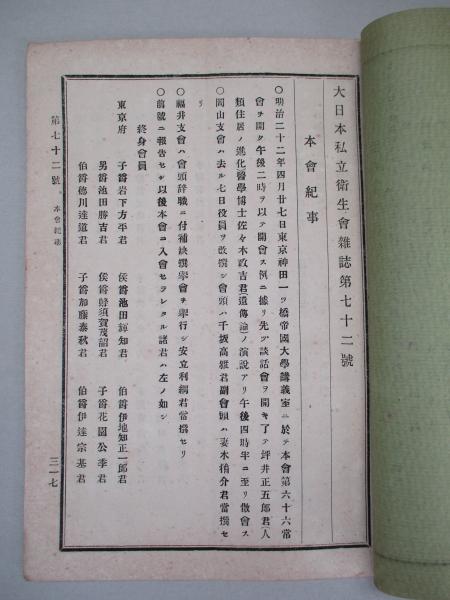 大日本私立衛生會雜誌第七十二號
本會紀事
○明治二十二年四月廿七日東京神田一ツ橋帝國大學講義室ニ於テ本會第六十六常
會ヲ開ク午後二時ヲ以テ開會ス例ニ據リ先ヅ談話會ヲ開キ了テ坪井正五郎君(人
類住居ノ進化)醫學博士佐々木政吉君(遺傳論)ノ演說アリ午後四時半ニ至リ散會ス
○岡山支會ハ去ル七日役員ヲ改撰シ會頭ハ千坂高雅君副會頭ハ妻木 介君當撰セ
リ
○福井支會ハ會頭辭職ニ付補缺撰擧會ヲ擧行シ安立利綱君當撰セリ
○前號ニ報告セシ以後本會ニ入會セラレタル諸君ハ左ノ如シ
終身會員
東京府 子爵岩下方平君 侯爵池田 知君 伯爵伊地知正一郎君
男爵池田勝吉君 侯爵蜂須賀茂韶君 子爵花園公季君
伯爵德川達道君 子爵加藤泰秋君 伯爵伊達宗基君
第七十二號 本會紀事
三一七